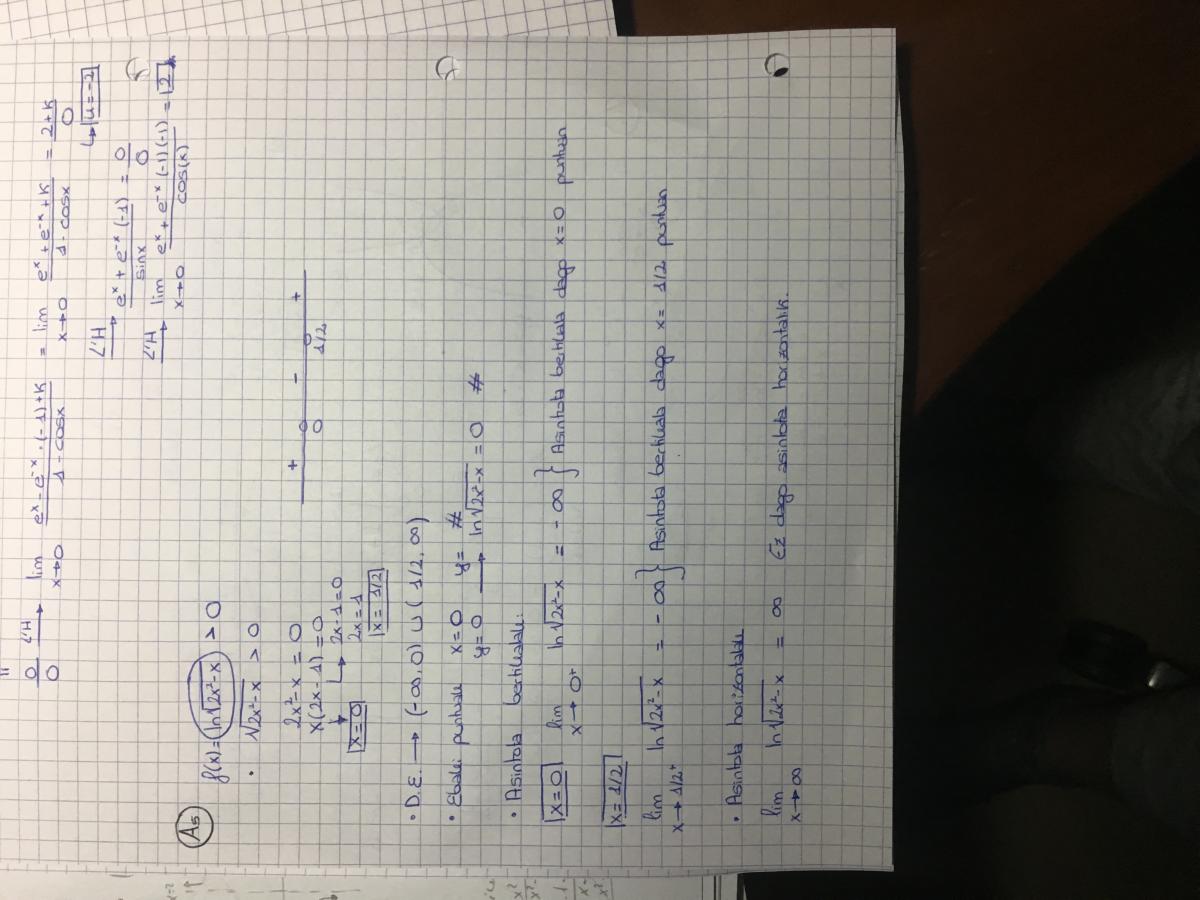 "
0/0 L'H→ lim x→0 (eˣ - e⁻ˣ · (-1) + K)/(1 - cosx) = lim x→0 (eˣ + e⁻ˣ + K)/(1 - cosx) = (2 + K)/0
↳ K = -2
L'H→ (eˣ + e⁻ˣ (-1))/sinx = 0/0
L'H→ lim x→0 (eˣ + e⁻ˣ (-1)(-1))/cos(x) = 2
A5 f(x) = ln√(2x²-x) > 0
• √(2x²-x) > 0
2x²-x = 0
x(2x-1) = 0
x = 0
↳ 2x-1 = 0
2x = 1
x = 1/2
+ - +
0 1/2
• D.E. → (-∞, 0) ∪ (1/2, ∞)
• Ebaki puntuak x = 0 y = ∄
y = 0 → ln√(2x²-x) = 0 ∄
• Asintota bertikalak:
x = 0 lim x→0⁺ ln√(2x²-x) = -∞ } Asintota bertikala dago x = 0 puntuan
x = 1/2
lim x→1/2⁺ ln√(2x²-x) = -∞ } Asintota bertikala dago x = 1/2 puntuan
• Asintota horizontalak
lim x→∞ ln√(2x²-x) = ∞ Ez dago asintota horizontalik.